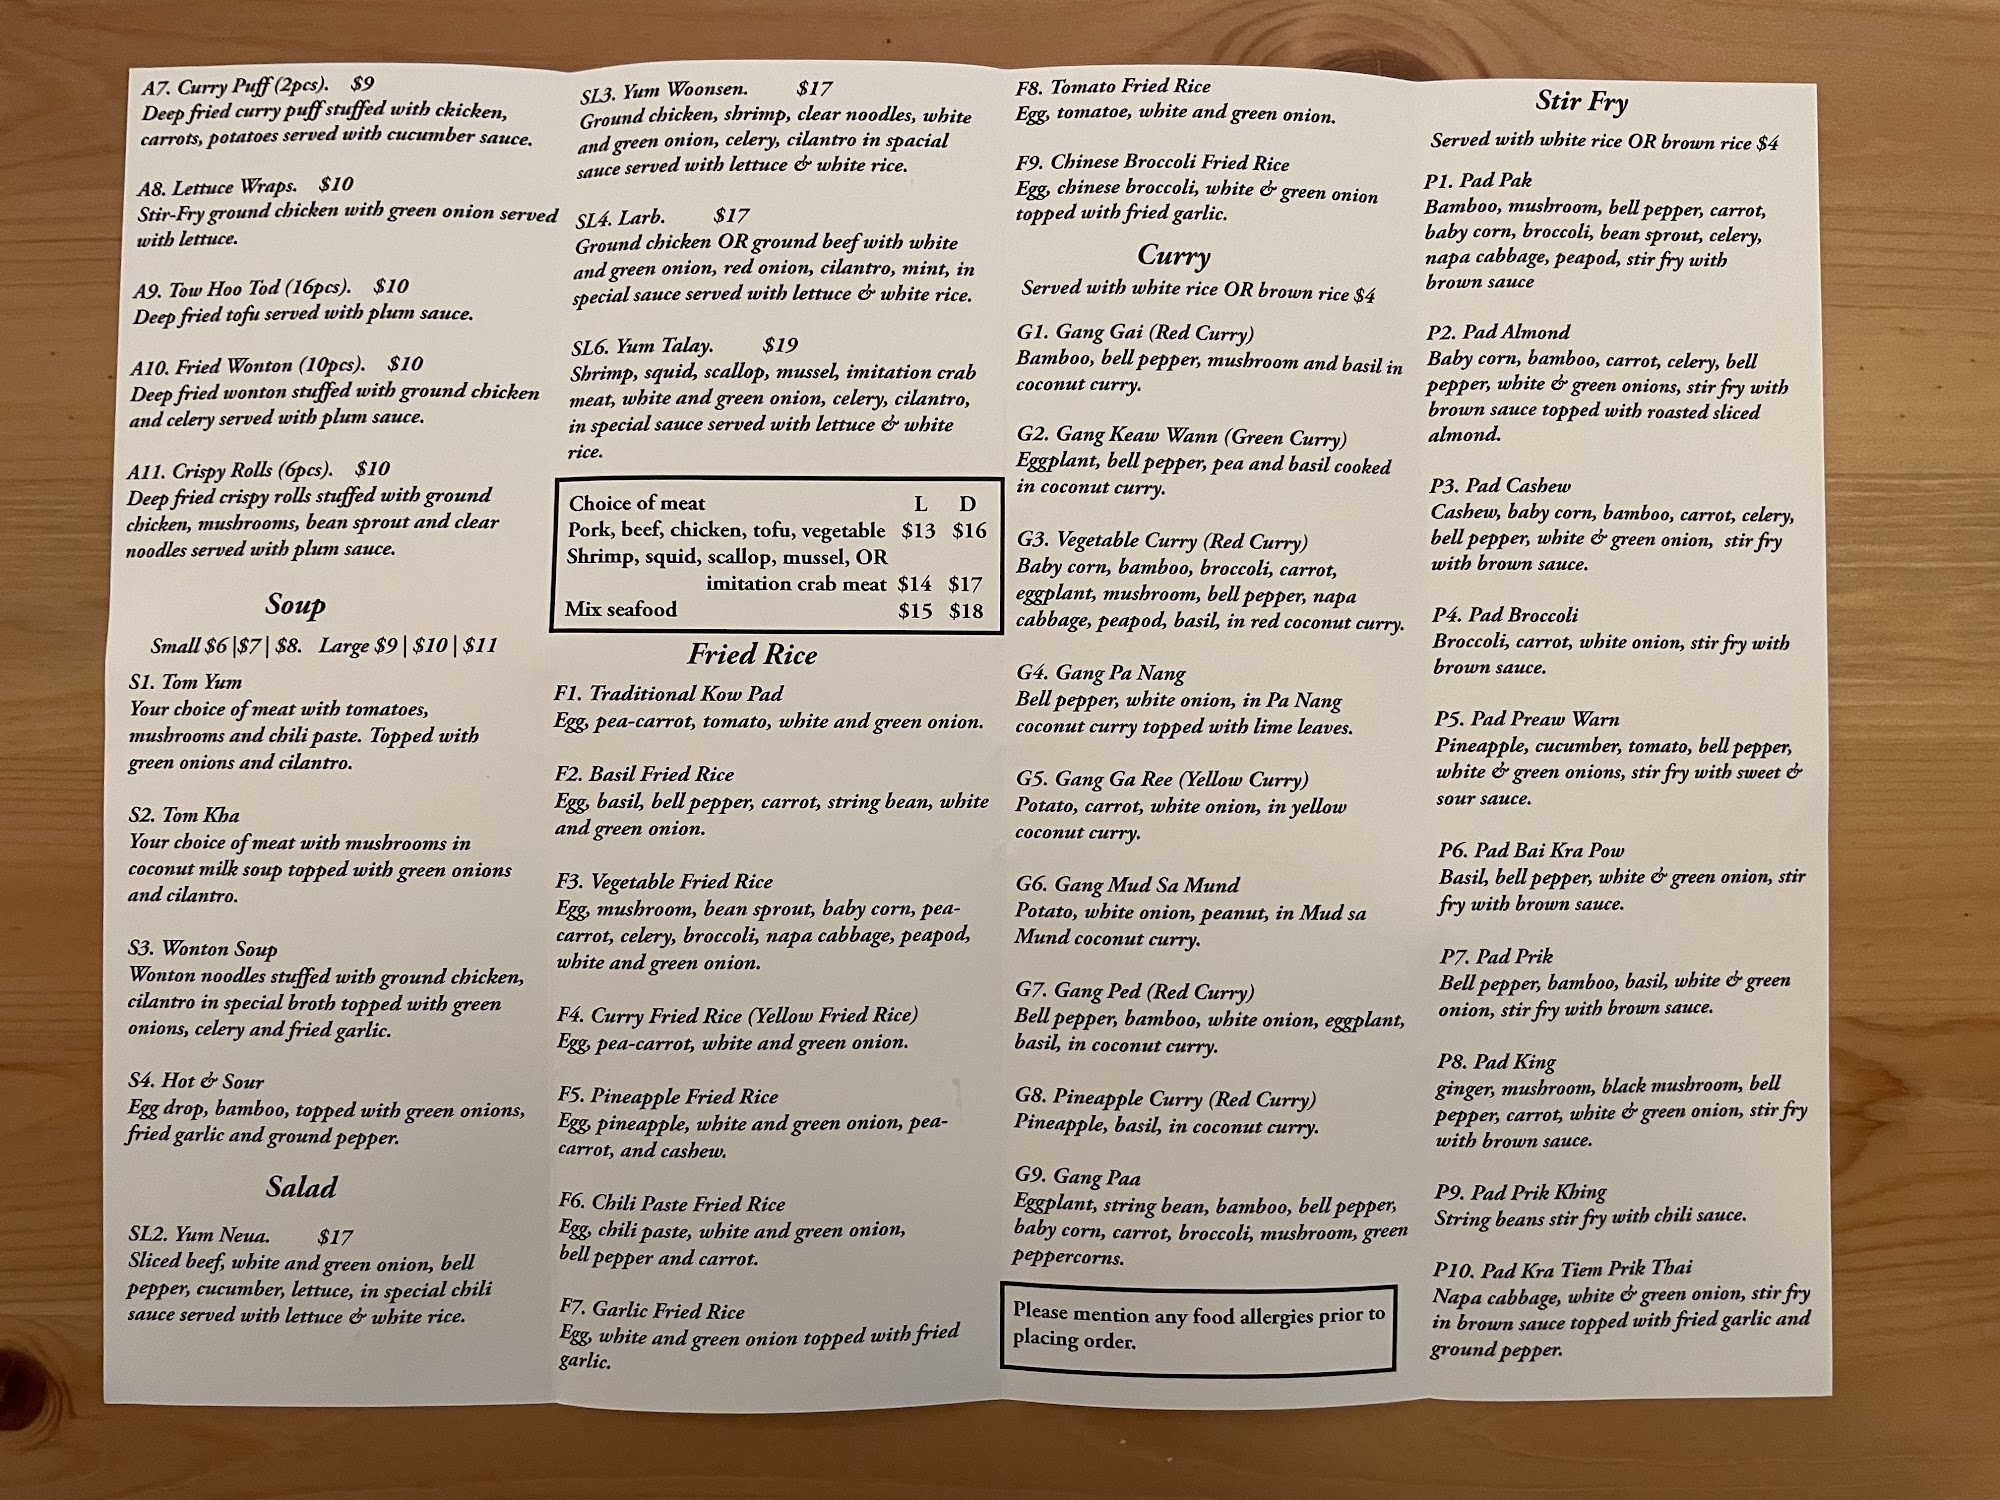 A7. Curry Puff (2pcs). $9
Deep fried curry puff stuffed with ckicken,
carrots, potatoes served with cucumber sauce.
A8. Lettuce Wraps. $10
Stir-Fry ground chicken with green onion served
with lettuce.
A9. Tow Hoo Tod (16pcs). $10
Deep fried tofu served with plum sauce.
A10. Fried Wonton (10pcs). $10
Deep fried wonton stuffed with ground chicken
and celery served with plum sauce.
A11. Crispy Rolls (6pcs). $10
Deep fried crispy rolls stuffed with ground
chicken, mushrooms, bean sprout and clear
noodles served with plum sauce.
Soup
Small $6 |$7 | $8. Large $9 | $10 | $11
S1. Tom Yum
Your choice of meat with tomatoes,
mushrooms and chili paste. Topped with
green onions and cilantro.
S2. Tom Kha
Your choice of meat with mushrooms in
coconut milk soup topped with green onions
and cilantro.
S3. Wonton Soup
Wonton noodles stuffed with ground chicken,
cilantro in special broth topped with green
onions, celery and fried garlic.
S4. Hot & Sour
Egg drop, bamboo, topped with green onions,
fried garlic and ground pepper.
Salad
SL2. Yum Neua. $17
Sliced beef, white and green onion, bell
pepper, cucumber, lettuce, in special chili
sauce served with lettuce & white rice.
SL3. Yum Woonsen. $17
Ground chicken, shrimp, clear noodles, white
and green onion, celery, cilantro in spacial
sauce served with lettuce & white rice.
SL4. Larb. $17
Ground chicken OR ground beef with white
and green onion, red onion, cilantro, mint, in
special sauce served with lettuce & white rice.
SL6. Yum Talay. $19
Shrimp, squid, scallop, mussel, imitation crab
meat, white and green onion, celery, cilantro,
in special sauce served with lettuce & white
rice.
Choice of meat L D
Pork, beef, chicken, tofu, vegetable $13 $16
Shrimp, squid, scallop, mussel, OR
imitation crab meat $14 $17
Mix seafood $15 $18
Fried Rice
F1. Traditional Kow Pad
Egg, pea-carrot, tomato, white and green onion.
F2. Basil Fried Rice
Egg, basil, bell pepper, carrot, string bean, white
and green onion.
F3. Vegetable Fried Rice
Egg, mushroom, bean sprout, baby corn, pea-
carrot, celery, broccoli, napa cabbage, peapod,
white and green onion.
F4. Curry Fried Rice (Yellow Fried Rice)
Egg, pea-carrot, white and green onion.
F5. Pineapple Fried Rice
Egg, pineapple, white and green onion, pea-
carrot, and cashew.
F6. Chili Paste Fried Rice
Egg, chili paste, white and green onion,
bell pepper and carrot.
F7. Garlic Fried Rice
Egg, white and green onion topped with fried
garlic.
F8. Tomato Fried Rice
Egg, tomatoe, white and green onion.
F9. Chinese Broccoli Fried Rice
Egg, chinese broccoli, white & green onion
topped with fried garlic.
Curry
Served with white rice OR brown rice $4
G1. Gang Gai (Red Curry)
Bamboo, bell pepper, mushroom and basil in
coconut curry.
G2. Gang Keaw Wann (Green Curry)
Eggplant, bell pepper, pea and basil cooked
in coconut curry.
G3. Vegetable Curry (Red Curry)
Baby corn, bamboo, broccoli, carrot,
eggplant, mushroom, bell pepper, napa
cabbage, peapod, basil, in red coconut curry.
G4. Gang Pa Nang
Bell pepper, white onion, in Pa Nang
coconut curry topped with lime leaves.
G5. Gang Ga Ree (Yellow Curry)
Potato, carrot, white onion, in yellow
coconut curry.
G6. Gang Mud Sa Mund
Potato, white onion, peanut, in Mud sa
Mund coconut curry.
G7. Gang Ped (Red Curry)
Bell pepper, bamboo, white onion, eggplant,
basil, in coconut curry.
G8. Pineapple Curry (Red Curry)
Pineapple, basil, in coconut curry.
G9. Gang Paa
Eggplant, string bean, bamboo, bell pepper,
baby corn, carrot, broccoli, mushroom, green
peppercorns.
Please mention any food allergies prior to
placing order.
Stir Fry
Served with white rice OR brown rice $4
P1. Pad Pak
Bamboo, mushroom, bell pepper, carrot,
baby corn, broccoli, bean sprout, celery,
napa cabbage, peapod, stir fry with
brown sauce
P2. Pad Almond
Baby corn, bamboo, carrot, celery, bell
pepper, white & green onions, stir fry with
brown sauce topped with roasted sliced
almond.
P3. Pad Cashew
Cashew, baby corn, bamboo, carrot, celery,
bell pepper, white & green onion, stir fry
with brown sauce.
P4. Pad Broccoli
Broccoli, carrot, white onion, stir fry with
brown sauce.
P5. Pad Preaw Warn
Pineapple, cucumber, tomato, bell pepper,
white & green onions, stir fry with sweet &
sour sauce.
P6. Pad Bai Kra Pow
Basil, bell pepper, white & green onion, stir
fry with brown sauce.
P7. Pad Prik
Bell pepper, bamboo, basil, white & green
onion, stir fry with brown sauce.
P8. Pad King
ginger, mushroom, black mushroom, bell
pepper, carrot, white & green onion, stir fry
with brown sauce.
P9. Pad Prik Khing
String beans stir fry with chili sauce.
P10. Pad Kra Tiem Prik Thai
Napa cabbage, white & green onion, stir fry
in brown sauce topped with fried garlic and
ground pepper.